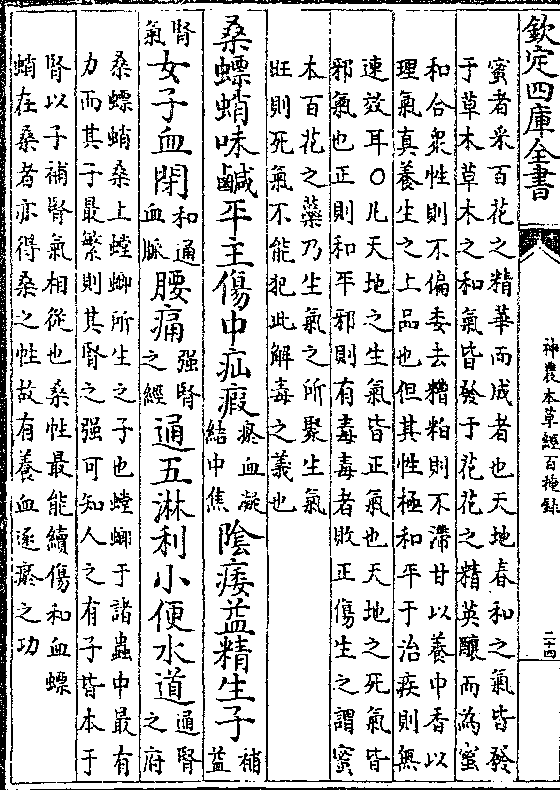 欽定四庫全書
神農本草經百種錄
二十四
蜜者采百花之精華而成者也天地春和之氣皆發
于草木草木之和氣皆發于花花之精英釀而為蜜
和合衆性則不偏委去糟粕則不滯甘以養中香以
理氣真養生之上品也但其性極和平于治疾則無
速效耳○凡天地之生氣皆正氣也天地之死氣皆
邪氣也正則和平邪則有毒毒者敗正傷生之謂蜜
本百花之蘂乃生氣之所聚生氣
旺則死氣不能犯此解毒之義也
桑螵蛸味鹹平主傷中疝瘕瘀血凝結中焦陰痿益精生子補益
腎氣女子血閉和通血脈腰痛强腎之經通五淋利小便水道通腎之府
桑螵蛸桑上螳螂所生之子也螳螂于諸蟲中最有
力而其子最繁則其腎之强可知人之有子皆本于
腎以子補腎氣相從也桑性最能續傷和血螵
蛸在桑者亦得桑之性故有養血逐瘀之功